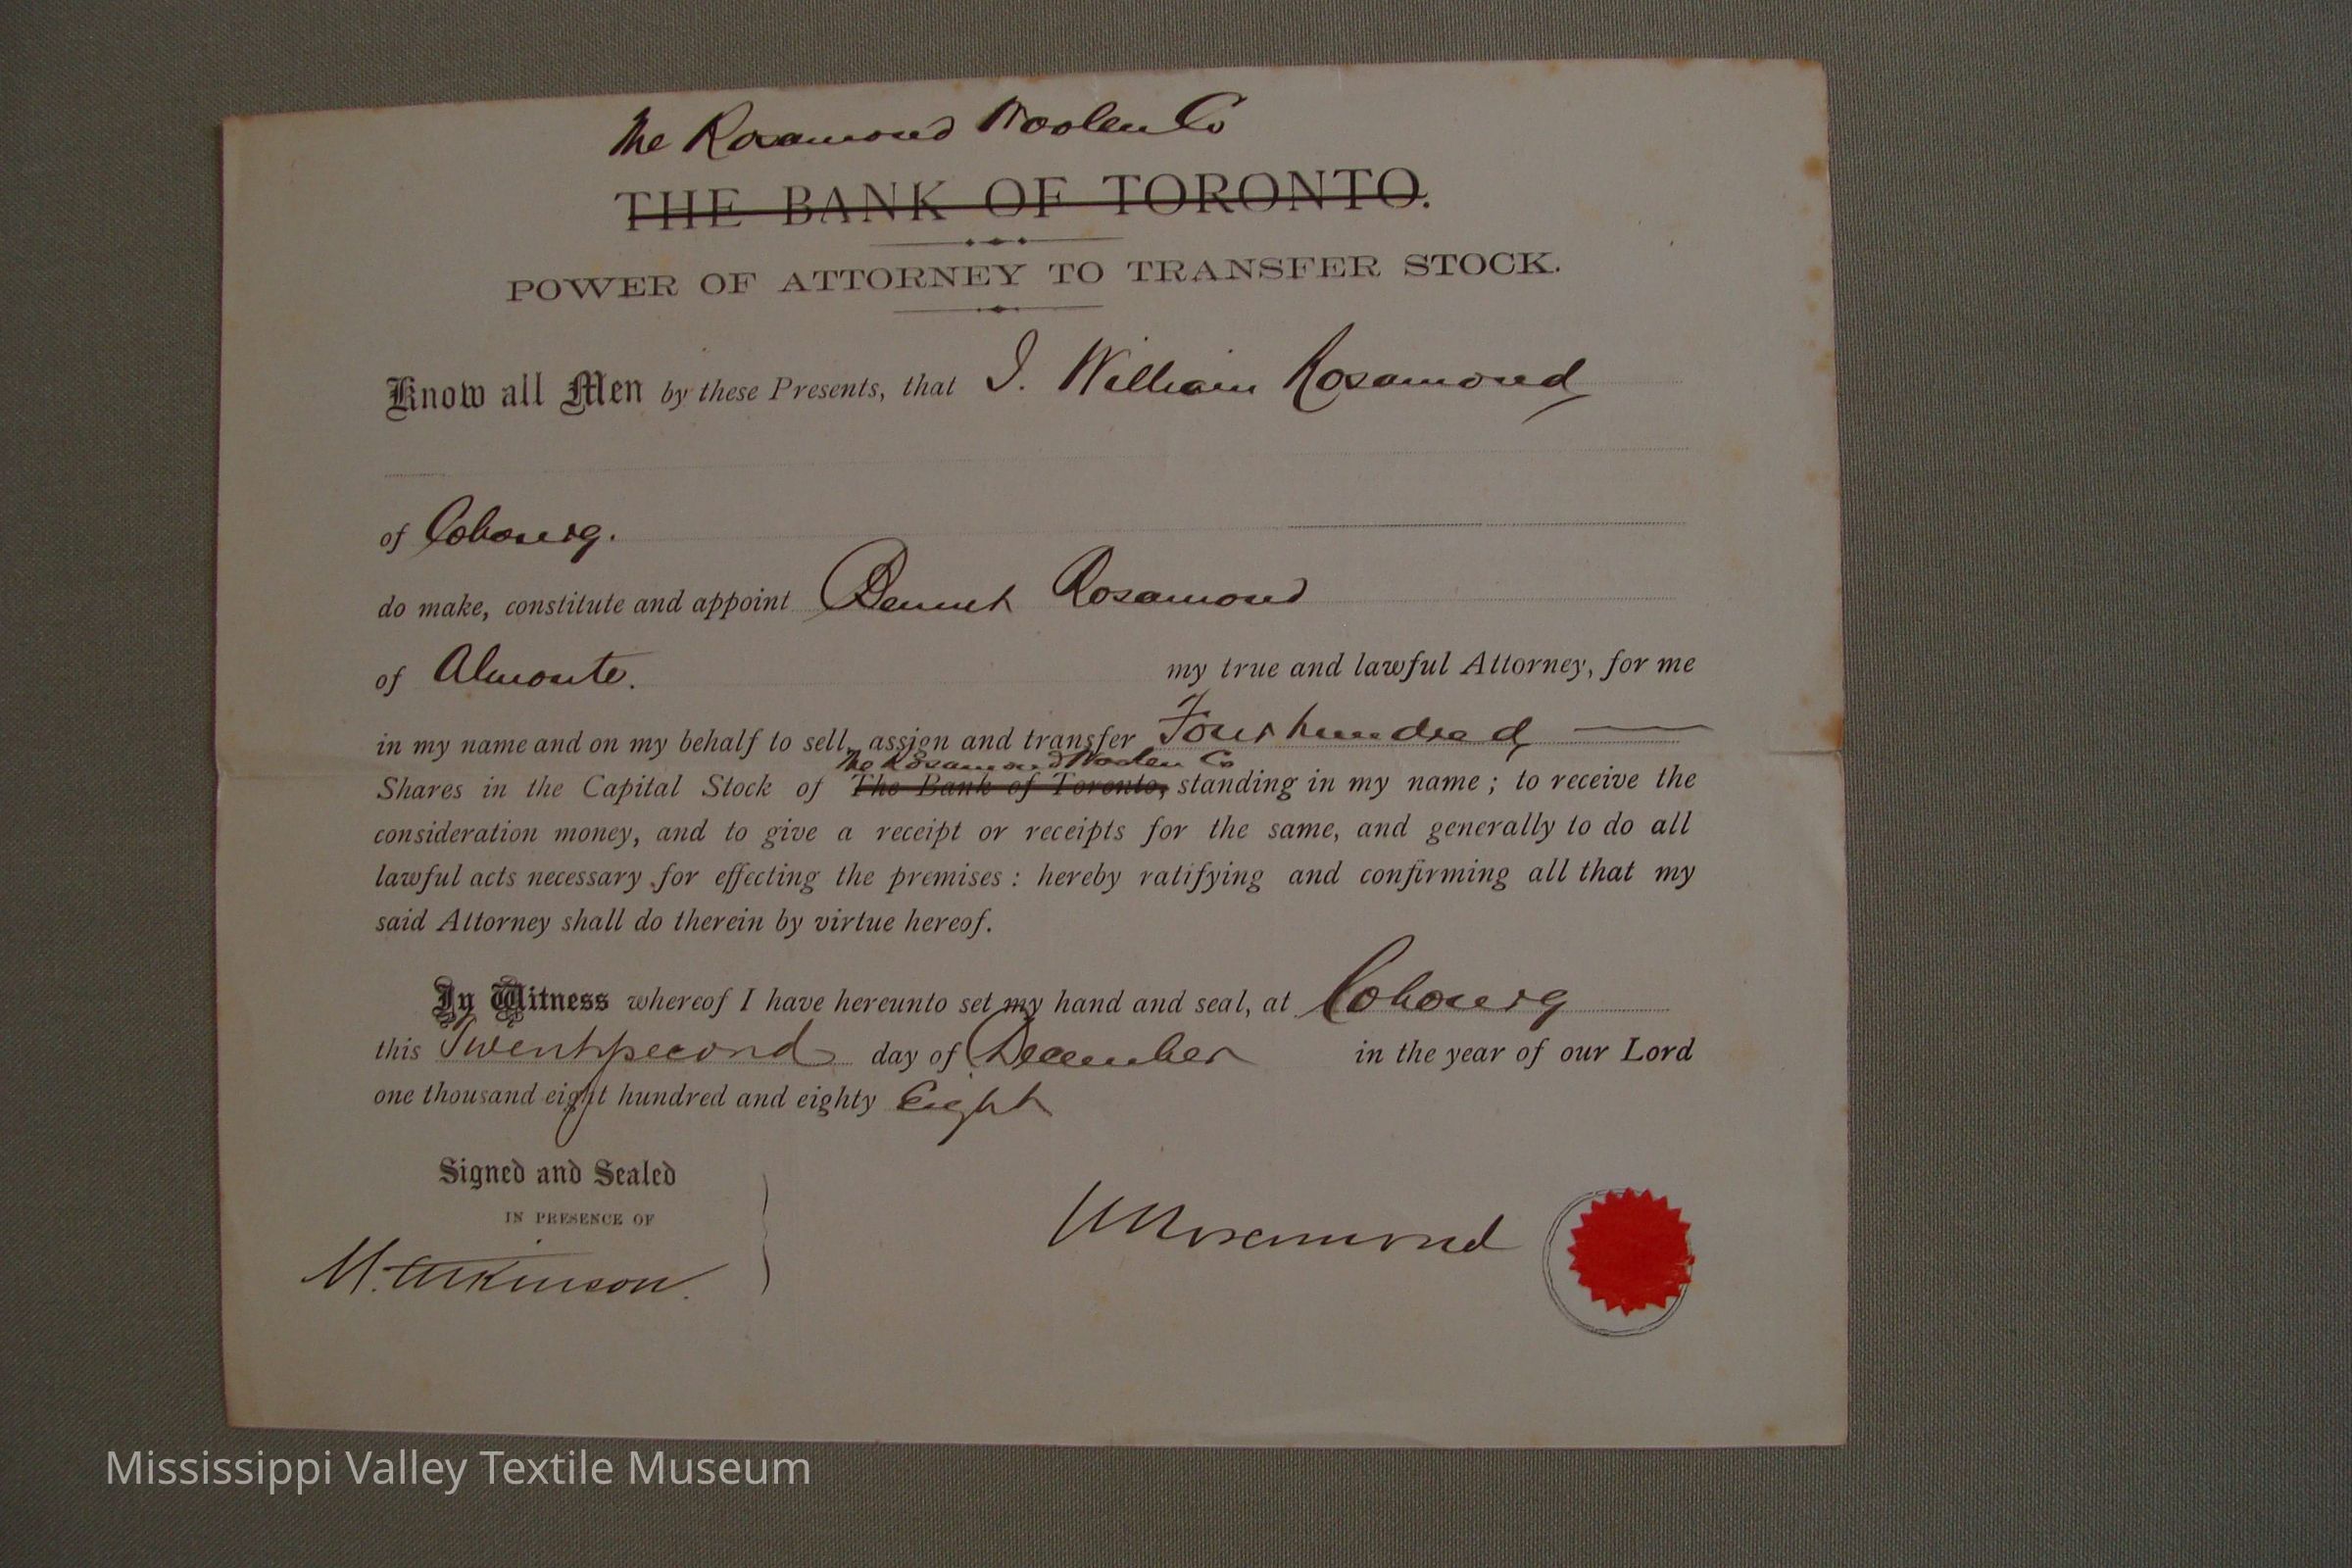 The Rosamond Woolen Co
THE BANK OF TORONTO.
POWER OF ATTORNEY TO TRANSFER STOCK.
Know all Men by these Presents, that I. William Rosamond
of Cobourg.
do make, constitute and appoint Bennet Rosamond
of Almonte. my true and lawful Attorney, for me
in my name and on my behalf to sell, assign and transfer Four hundred
The Rosamond Woolen Co
Shares in the Capital Stock of The Bank of Toronto, standing in my name ; to receive the
consideration money, and to give a receipt or receipts for the same, and generally to do all
lawful acts necessary for effecting the premises : hereby ratifying and confirming all that my
said Attorney shall do therein by virtue hereof.
In Witness whereof I have hereunto set my hand and seal, at Cobourg
this Twentysecond day of December in the year of our Lord
one thousand eight hundred and eighty Eight
Signed and Sealed
IN PRESENCE OF
M. Atkinson.
W Rosamond
Mississippi Valley Textile Museum